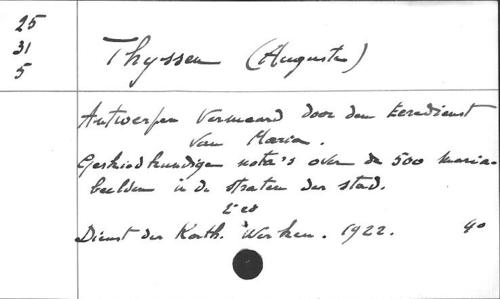 25
31
5
Thyssen (Augustin)
Antwerpen vermaard door den Eeredienst
van Maria.
Geskiedkundige nota's over de 500 maria-
beelden in de straten der stad.
2e
Dienst der Kath. Werken. 1922. 4o